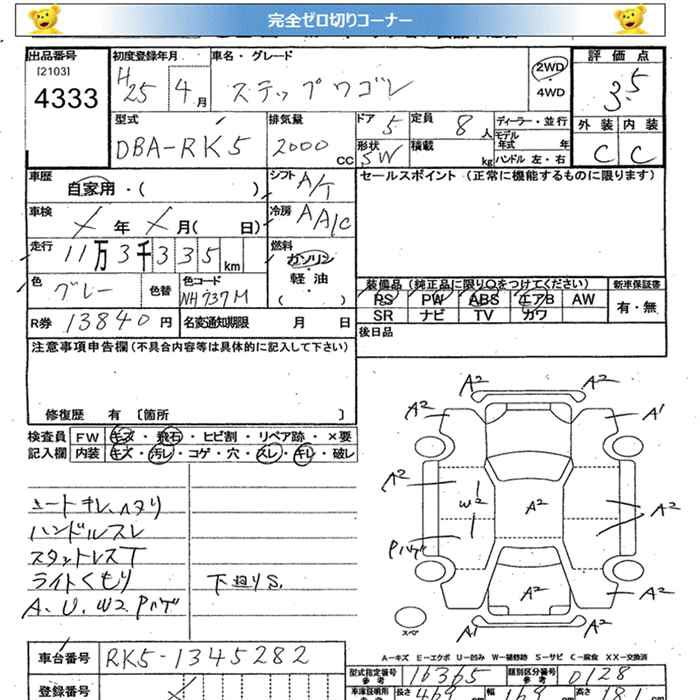 完全ゼロ切りコーナー
出品番号 初度登録年月 車名・グレード 評価点
[2103]
4333 H25 4月 ステップワゴン 2WD 4WD 3.5
型式 排気量 ドア 5 定員 8人 ディーラー・並行 外装 内装
DBA-RK5 2000 CC 形状 SW 積載 kg モデル年式 年 C C
ハンドル 左・右
車歴 自家用・( ) シフト A/T セールスポイント (正常に機能するものに限ります)
車検 X年 X月( 日) 冷房 AA/C
走行 11万3千335km 燃料 ガソリン・軽油 ( )
色 グレー 色替 色コード NH737M
装備品 (純正品に限り○をつけてください) 新車保証書
PS PW ABS エアB AW 有・無
SR ナビ TV カワ
R券 13840円 名変通知期限 月 日 後日品
注意事項申告欄 (不具合内容等は具体的に記入して下さい)
修復歴 有 [箇所 ]
検査員 FW キズ・飛石・ヒビ割・リペア跡・×要
記入欄 内装 キズ・汚レ・コゲ・穴・スレ・キレ・破レ
A2 A2
A2 A1
A2 W2 A2 A2
Pハゲ
A2 A2
A1 A2
スペア
シートキレ、ヘタリ
ハンドルスレ
スタットレスT
ライトくもり 下廻りS.
A、U、W2、Pハゲ
A－キズ E－エクボ U－凹み W－補修跡 S－サビ C－腐食 XX－交換済
車台番号 RK5-1345282
型式指定番号 参考 16365 類別区分番号 参考 0128
登録番号 車庫証明用 長さ 469 幅 169 高さ 181